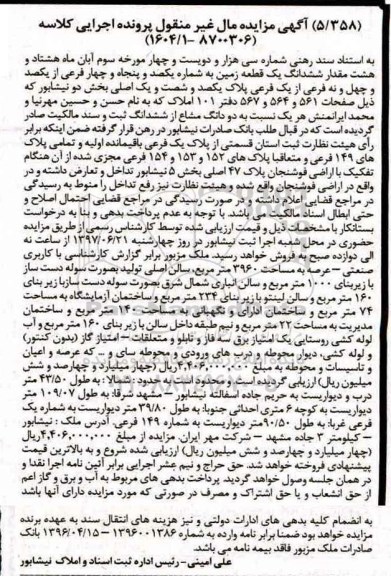 (۵/۳۵۸) آگهی مزایده مال غیر منقول پرونده اجرایی کلاسه
(۱۶۰۴/۱-۸۷۰۰۳۰۶)
به استناد سند رهنی شماره سی هزار و دویست و چهار مورخه سوم آبان ماه هشتاد و
هشت مقدار ششدانگ یک قطعه زمین به شماره یکصد و پنجاه و چهار فرعی از یکصد
و چهل و نه فرعی از یک فرعی پلاک یکصد و شصت و یک اصلی بخش دو نیشابور که
ذیل صفحات ۵۶۱ و ۵۶۴ و ۵۶۷ دفتر ۱۰۱ املاک که به نام حسن و حسین مهرنیا و
محمد ایرانمنش هر یک نسبت به دو دانگ مشاع از ششدانگ ثبت و سند مالکیت صادر
گردیده است که در قبال طلب بانک صادرات نیشابور در رهن قرار گرفته ضمن اینکه برابر
رأی هیئت نظارت ثبت استان قسمتی از پلاک یک فرعی باقیمانده اولیه و تمامی پلاک
های ۱۴۹ فرعی و متعاقبا پلاک های ۱۵۲ و ۱۵۳ و ۱۵۴ فرعی مجزی شده از آن هنگام
تفکیک با اراضی فوشنجان پلاک ۴۷ اصلی بخش ۵ نیشابور تداخل و تعارض داشته و در
واقع در اراضی فوشنجان واقع شده و هیئت نظارت نیز رفع تداخل را منوط به رسیدگی
در مراجع قضایی اعلام داشته و در صورت رسیدگی در مراجع قضایی احتمال اصلاح و
حتی ابطال اسناد مالکیت می باشد. با توجه به عدم پرداخت بدهی و بنا به درخواست
بستانکار با مشخصات ذیل و قیمت ارزیابی شده توسط کارشناس رسمی از طریق مزایده
حضوری در محل شعبه اجرا ثبت نیشابور در روز چهارشنبه ۱۳۹۷/۰۶/۲۱ از ساعت نه
الی دوازده صبح به فروش خواهد رسید. ملک مزبور برابر گزارش کارشناسی با کاربری
صنعتی -عرصه به مساحت ۳۹۶۰ متر مربع، سالن اصلی تولید بصورت سوله دست ساز
با زیربنای ۱۰۰۰ متر مربع و سالن انباری شمال شرق بصورت سوله دست سازبا زیر بنای
۱۶۰ متر مربع و سالن لینتو با زیر بنای ۲۳۴ متر مربع و ساختمان آزمایشگاه به مساحت
۷۴ متر مربع و ساختمان اداری و نگهبانی به مساحت ۱۴۰ متر مربع و ساختمان
مدیریت به مساحت ۲۲ متر مربع و نیم طبقه داخل سالن با زیر بنای ۱۶۰ متر مربع و آب
لوله کشی روستایی یک امتیاز برق سه فاز و تابلو و متعلقات - امتیاز گاز (بدون کنتور)
و لوله کشی، دیوار محوطه و درب های ورودی و محوطه سازی و - که عرصه و اعیان
و تاسیسات و محوطه به مبلغ ۴،۴۰۶،۰۰۰،۰۰۰ریال (چهار میلیارد و چهارصد و شش
میلیون ریال) ارزیابی گردیده است و محدود است به حدود شمالا: به طول ۴۳/۵۰ متر
درب و دیواریست به حریم جاده آسفالته نیشابور - مشهد شرقا: به طول ۱۰۹/۰۷ متر
دیواریست به کوچه ۶ متری احداثی جنوبا: به طول ۳۹/۸۰ متر دیواریست به شماره یک
فرعی غربا: به طول ۹۰/۵۰متر دیواریست به شماره ۱۴۹ فرعی. آدرس ملک : نیشابور
- کیلومتر ۳ جاده مشهد - شرکت مهر ایران. مزایده از مبلغ ۴،۴۰۶،۰۰۰،۰۰۰ریال
(چهار میلیارد و چهارصد و شش میلیون ریال) ارزیابی شده شروع و به بالاترین قیمت
پیشنهادی فروخته خواهد شد. حق حراج و نیم عشر اجرایی برابر آئین نامه اجرا نقدا و
در همان جلسه وصول خواهد گردید. پرداخت بدهی های مربوط به آب و برق و گاز اعم
از حق انشعاب و یا حق اشتراک و مصرف در صورتی که مورد مزایده دارای آنها باشد
به انضمام کلیه بدهی های ادارات دولتی و نیز هزینه های انتقال سند به عهده برنده
مزایده خواهد بود ضمنا برابر نامه وارده به شماره ۱۳۹۶۰۰۱۳۸۶ - ۱۳۹۶/۰۴/۱۵ بانک
صادرات ملک مزبور فاقد بیمه نامه می باشد.
علی امینی- رئیس اداره ثبت اسناد و املاک نیشابور